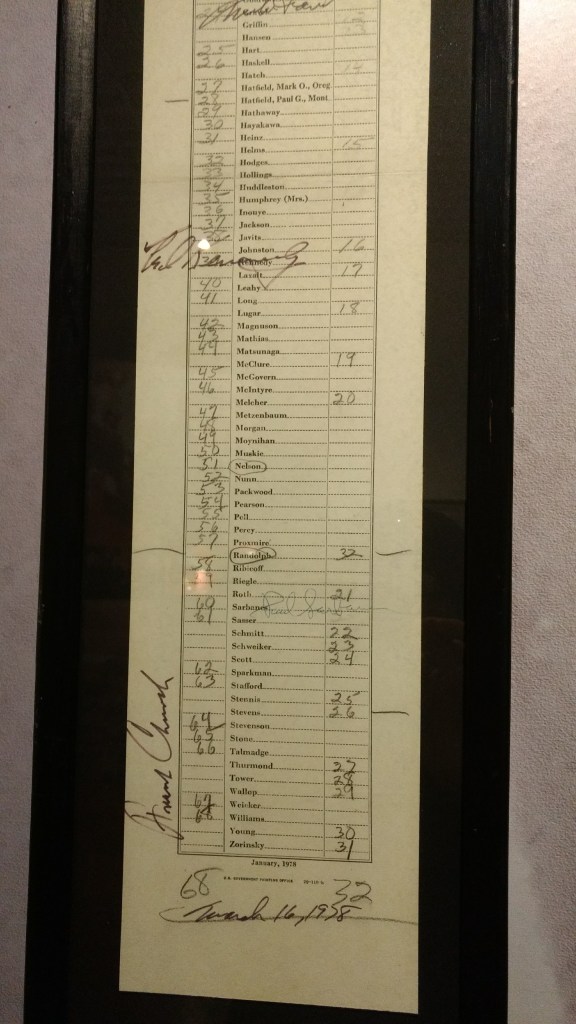 Griffin
Hansen
25 Hart
26 Haskell
Hatch 14
27 Hatfield, Mark O., Oreg
28 Hatfield, Paul G., Mont
29 Hathaway
30 Hayakawa
31 Heinz
Helms 15
32 Hodges
33 Hollings
34 Huddleston
35 Humphrey (Mrs.)
36 Inouye
37 Jackson
38 Javits
Johnston 16
Kennedy
Laxalt 17
40 Leahy
41 Long
Lugar 18
42 Magnuson
43 Mathias
44 Matsunaga
McClure 19
45 McGovern
46 McIntyre
Melcher 20
47 Metzenbaum
48 Morgan
49 Moynihan
50 Muskie
51 Nelson
52 Nunn
53 Packwood
54 Pearson
55 Pell
56 Percy
57 Proxmire
Randolph 32
58 Ribicoff
Riegle
Roth 21
60 Sarbanes Paul Sarbanes
61 Sasser
Schmitt 22
Schweiker 23
Scott 24
62 Sparkman
63 Stafford
Stennis 25
Stevens 26
64 Stevenson
65 Stone
66 Talmadge
Thurmond 27
Tower 28
Wallop 29
67 Weicker
68 Williams
Young 30
Zorinsky 31
Frank Church
January, 1978
U.S. GOVERNMENT PRINTING OFFICE
68 32
March 16, 1978